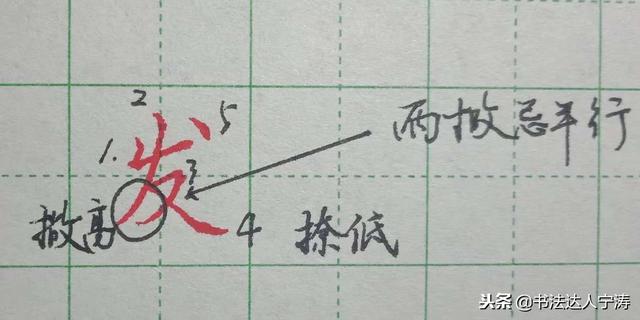 2
5
两撇忌平行
1.
发
3
撇高
4 捺低
头条@书法达人宁涛